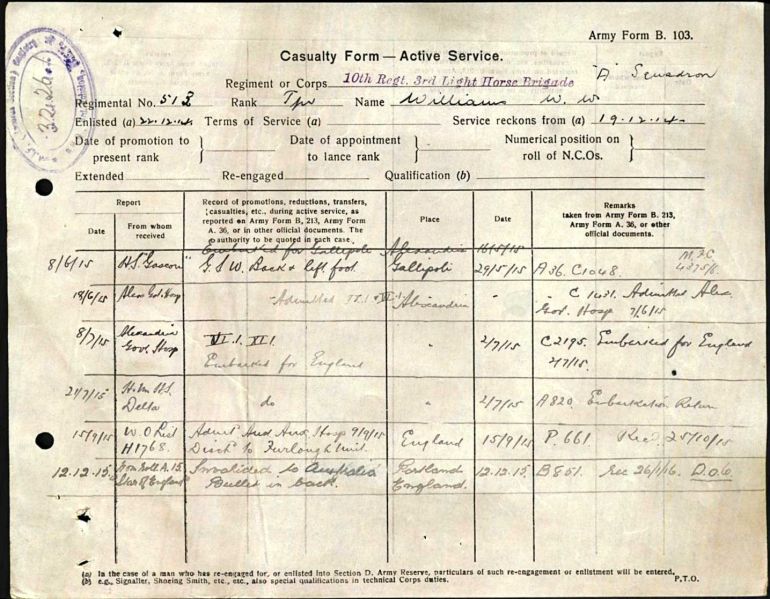 Army Form B. 103.
Casualty Form — Active Service.
Regiment or Corps 10th Regt. 3rd Light Horse Brigade "A" Squadron
Regimental No. 513 Rank Tpr Name Williams W. W.
Enlisted (a) 22.12.14 Terms of Service (a) Service reckons from (a) 19.12.14
Date of promotion to present rank } Date of appointment to lance rank } Numerical position on roll of N.C.Os. }
Extended Re-engaged Qualification (b)
Report
Date
From whom received
Record of promotions, reductions, transfers, casualties, etc., during active service, as reported on Army Form B, 213, Army Form A. 36, or in other official documents. The authority to be quoted in each case.
Place
Date
Remarks taken from Army Form B. 213, Army Form A. 36, or other official documents.
Embarked for Gallipoli Alexandria 16/5/15
8/6/15 H.S. "Gascon" G.S.W. Back & left foot. Gallipoli 29/5/15 A36. C1048.
18/6/15 Alex Gov. Hosp Admitted Alexandria " C 1431. Admitted Alex. Gov. Hosp 7/6/15
8/7/15 Alexandria Govt. Hosp VI.1. XI.1. Embarked for England " 2/7/15 C2195. Embarked for England 2/7/15.
21/7/15 H.S. Delta do " 2/7/15 A820. Embarkation Return
15/9/15 W.O List H1768. Admit Aux. Hosp 9/9/15 Disch to Furlough England 15/9/15 P.661 Rec 25/10/15
12.12.15 Nom Roll A.15 Star of England Invalided to Australia Bullet in back. Portland England. 12.12.15 B851. Rec 26/1/16.
(a) In the case of a man who has re-engaged for, or enlisted into Section D. Army Reserve, particulars of such re-engagement or enlistment will be entered.
(b) e.g., Signaller, Shoeing Smith, etc., etc., also special qualifications in technical Corps duties. P.T.O.